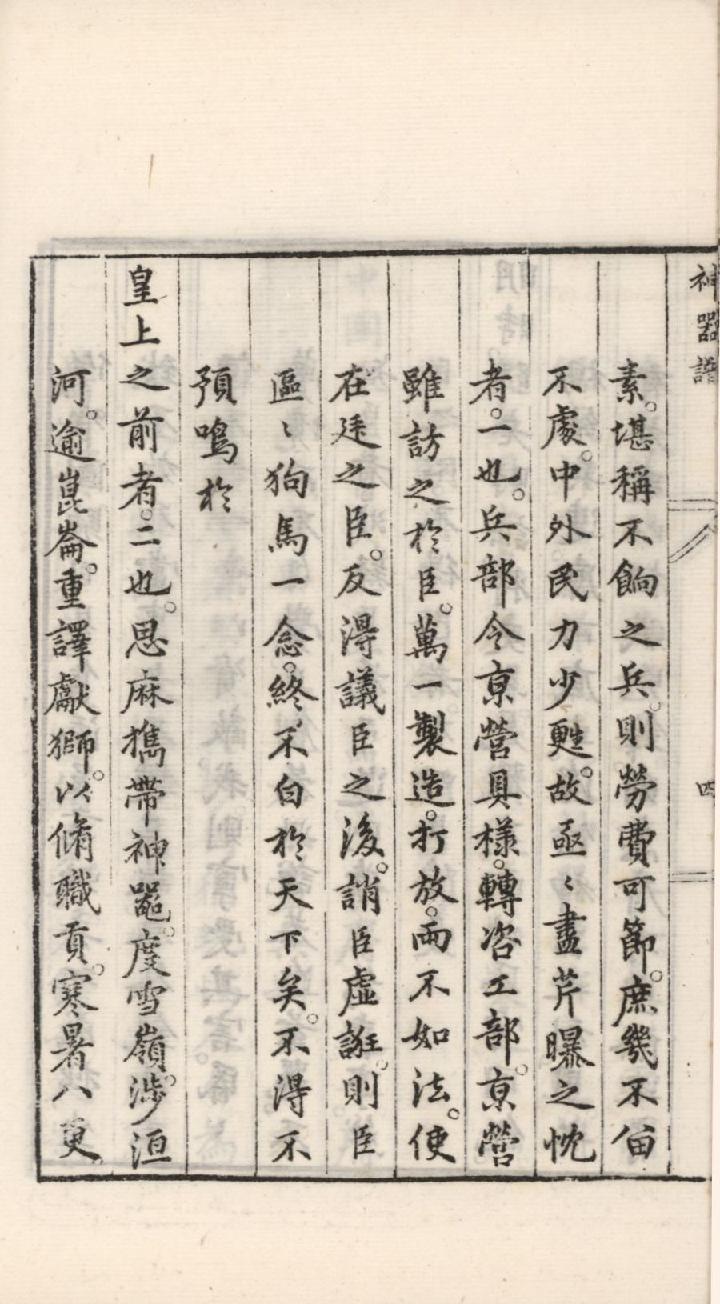 神器譜
四
素。堪稱不餉之兵。則勞費可節。庶幾不匱
不處。中外民力少甦。故亟〻盡芹曝之忱
者。一也。兵部令京營具樣。轉咨工部。京營
雖訪之於臣。萬一製造。打放。而不如法。使
在廷之臣。反淂議臣之後。誚臣虛誑。則臣
區〻狗馬一念。終不白於天下矣。不淂不
預鳴於
皇上之前者。二也。思麻擕帶神噐。度雪嶺。涉洹
河。逾崑崙。重譯獻獅。以脩職貢。寒暑八更